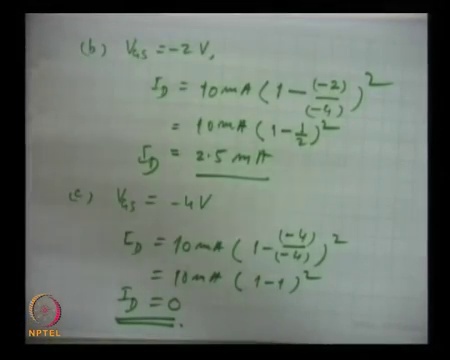 (b) VGS = -2 V,
ID = 10 mA (1 - (-2)/(-4))²
= 10 mA (1 - 1/2)²
ID = 2.5 mA
(c) VGS = -4V
ID = 10 mA (1 - (-4)/(-4))²
= 10 mA (1 - 1)²
ID = 0.
NPTEL